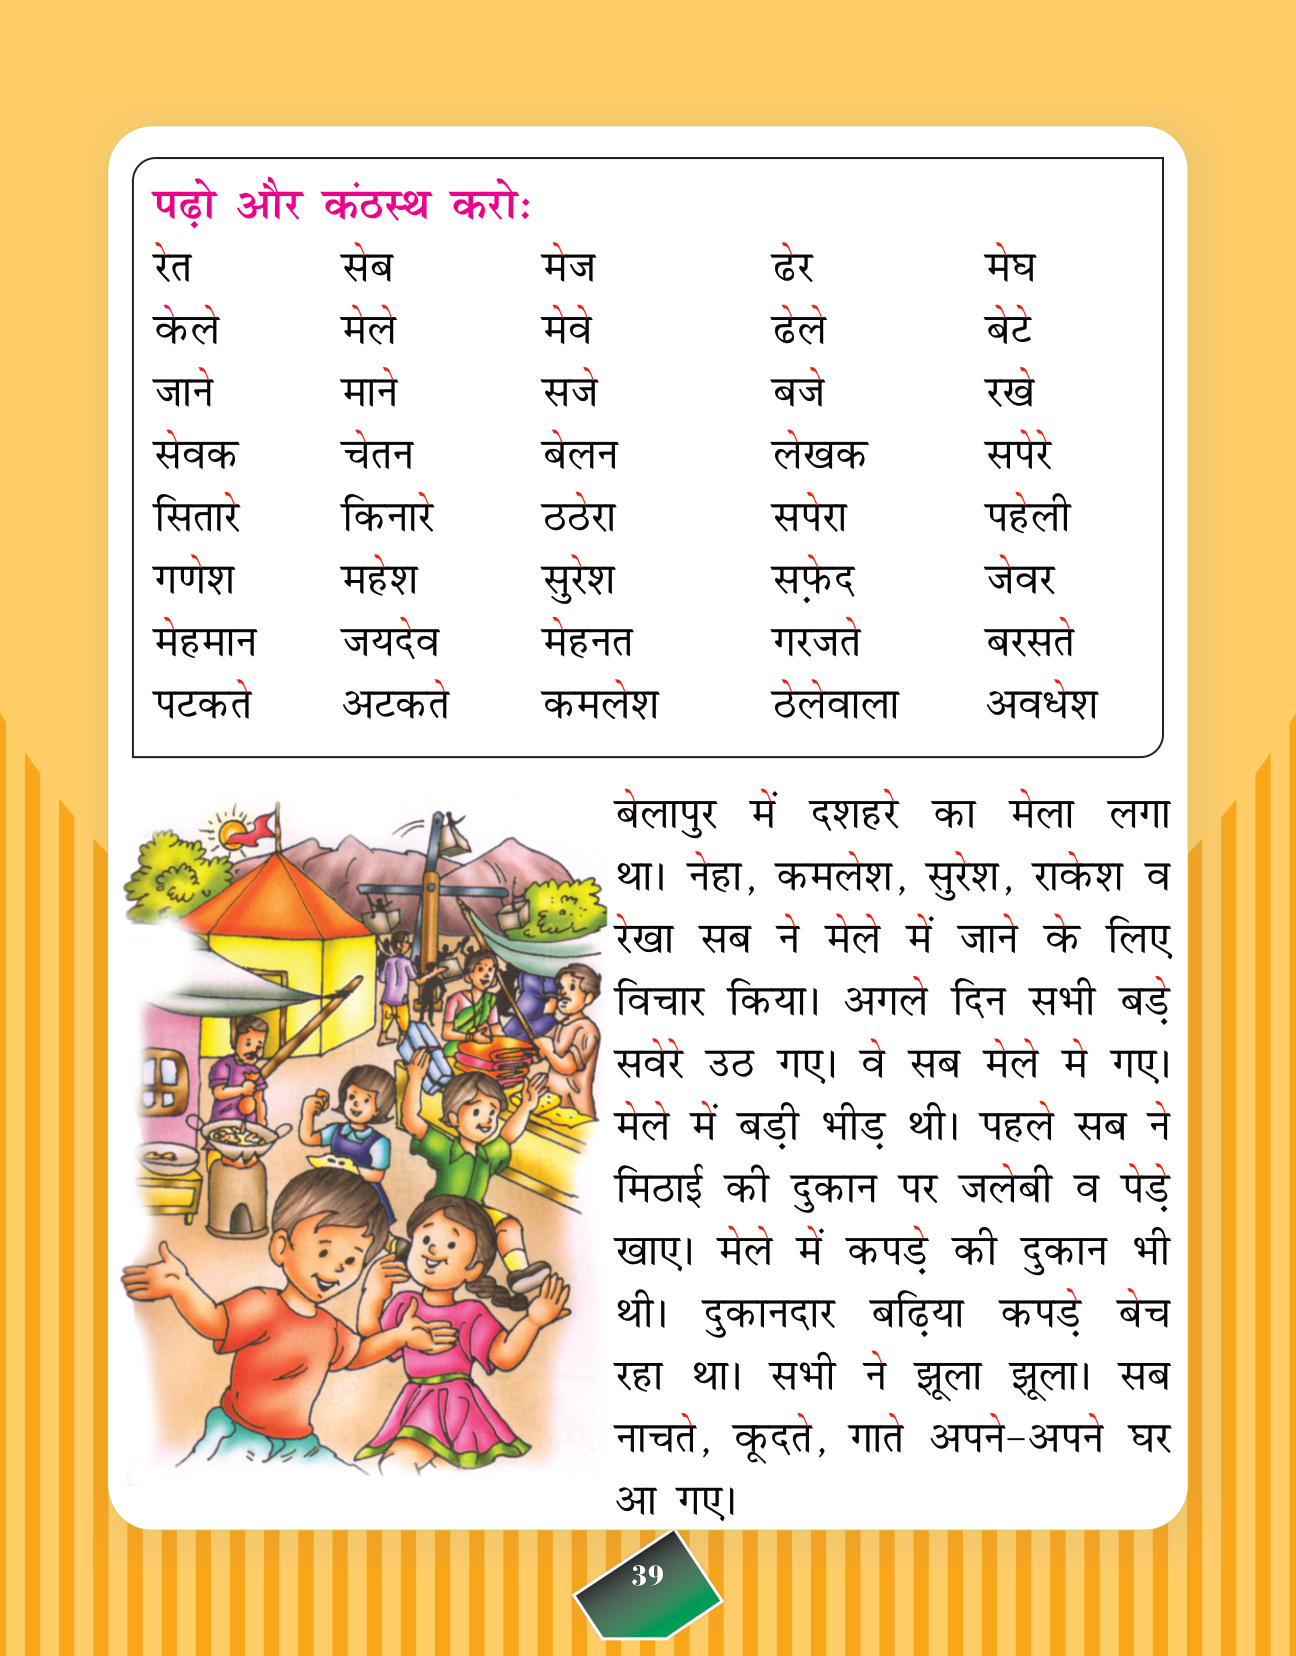 पढ़ो और कंठस्थ करोः
रेत सेब मेज ढेर मेघ
केले मेले मेवे ढेले बेटे
जाने माने सजे बजे रखे
सेवक चेतन बेलन लेखक सपेरे
सितारे किनारे ठठेरा सपेरा पहेली
गणेश महेश सुरेश सफ़ेद जेवर
मेहमान जयदेव मेहनत गरजते बरसते
पटकते अटकते कमलेश ठेलेवाला अवधेश
बेलापुर में दशहरे का मेला लगा
था। नेहा, कमलेश, सुरेश, राकेश व
रेखा सब ने मेले में जाने के लिए
विचार किया। अगले दिन सभी बड़े
सवेरे उठ गए। वे सब मेले मे गए।
मेले में बड़ी भीड़ थी। पहले सब ने
मिठाई की दुकान पर जलेबी व पेड़े
खाए। मेले में कपड़े की दुकान भी
थी। दुकानदार बढ़िया कपड़े बेच
रहा था। सभी ने झूला झूला। सब
नाचते, कूदते, गाते अपने-अपने घर
आ गए।
39